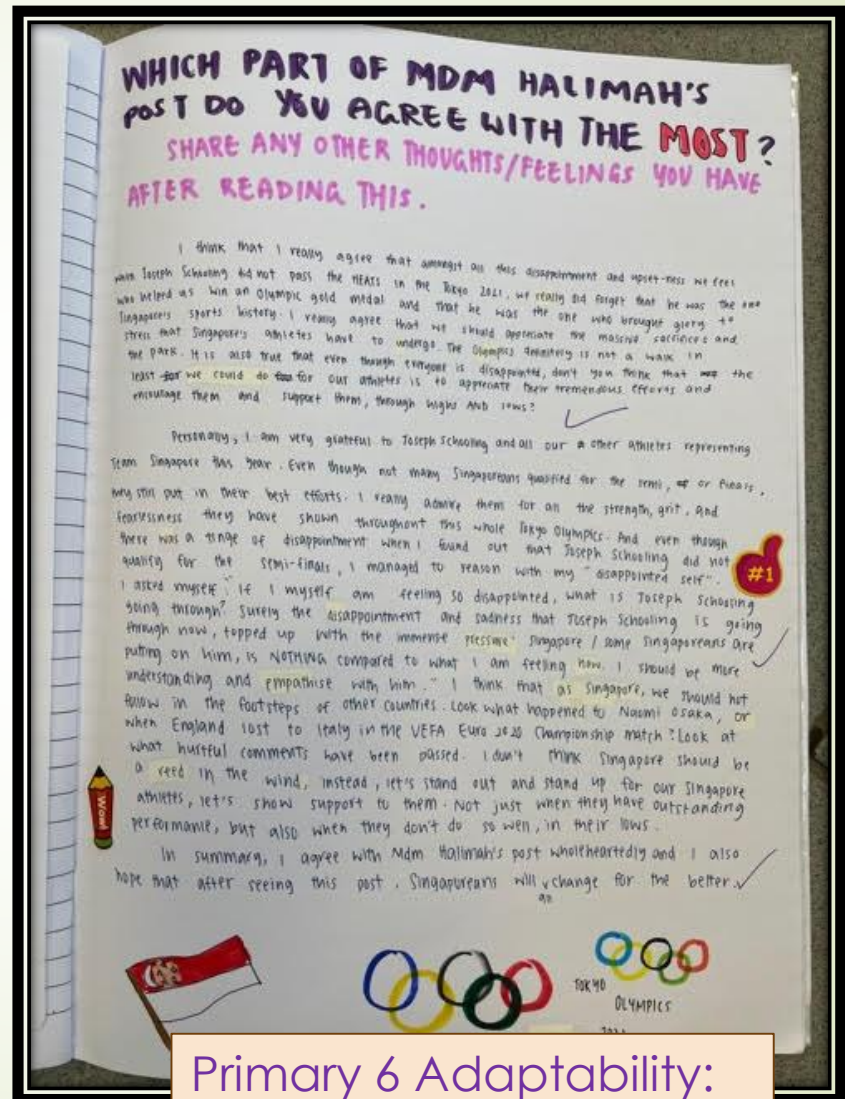 WHICH PART OF MDM HALIMAH'S
POST DO YOU AGREE WITH THE MOST?
SHARE ANY OTHER THOUGHTS/FEELINGS YOU HAVE
AFTER READING THIS.
I think that I really agree that amongst all this disappointment and upset-ness we feel
when Joseph Schooling did not pass the HEATS in the Tokyo 2021, we really did forget that he was the one
who helped us win an Olympic gold medal and that he was the one who brought glory to
Singapore's sports history. I really agree that we should appreciate the massive sacrifices and
stress that Singapore's athletes have to undergo. The Olympics definitely is not a walk in
the park. It is also true that even though everyone is disappointed, don't you think that the
least we could do for our athletes is to appreciate their tremendous efforts and
encourage them and support them, through highs AND lows?
Personally, I am very grateful to Joseph Schooling and all our other athletes representing
Team Singapore this year. Even though not many Singaporeans qualified for the semi, or finals,
they still put in their best efforts. I really admire them for all the strength, grit, and
fearlessness they have shown throughout this whole Tokyo Olympics. And even though
there was a tinge of disappointment when I found out that Joseph Schooling did not
qualify for the semi-finals, I managed to reason with my "disappointed self".
#1
I asked myself, "If I myself am feeling so disappointed, what is Joseph Schooling
going through? Surely the disappointment and sadness that Joseph Schooling is going
through now, topped up with the immense pressure Singapore / some Singaporeans are
putting on him, is NOTHING compared to what I am feeling now. I should be more
understanding and empathise with him." I think that as Singapore, we should not
follow in the footsteps of other countries. Look what happened to Naomi Osaka, or
when England lost to Italy in the UEFA Euro 2020 Championship match? Look at
what hurtful comments have been passed. I don't think Singapore should be
a reed in the wind, instead, let's stand out and stand up for our Singapore
Wow!
athletes, let's show support to them. Not just when they have outstanding
performance, but also when they don't do so well, in their lows.
In summary, I agree with Mdm Halimah's post wholeheartedly and I also
hope that after seeing this post, Singaporeans will all change for the better.
TOKYO
OLYMPICS
Primary 6 Adaptability: